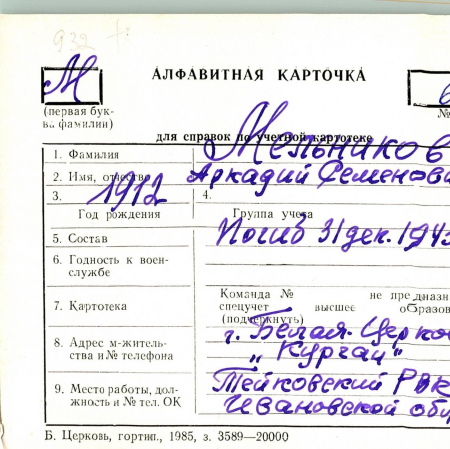 932
М
АЛФАВИТНАЯ КАРТОЧКА
(первая бук-
ва фамилии)
№
для справок по учетной картотеке
1. Фамилия Мельников
2. Имя, отчество Аркадий Семенови
3. 1912 4.
Год рождения Группа учета
5. Состав Погиб 31 дек. 1943
6. Годность к воен-
службе
Команда № не предназн
7. Картотека спецучет высшее образов
(подчеркнуть)
г. Белая-Церко
8. Адрес м-житель-
ства и № телефона „Курган"
9. Место работы, дол- Тейковский РВК
жность и № тел. ОК Ивановской об
Б. Церковь, гортип., 1985, з. 3589—20000